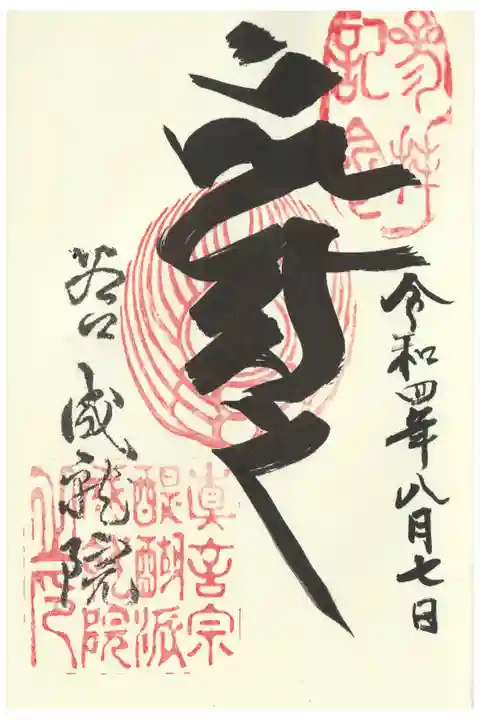 参拝
記念
令和四年八月七日
谷口 成龍院
眞言宗
醍醐派
成龍院